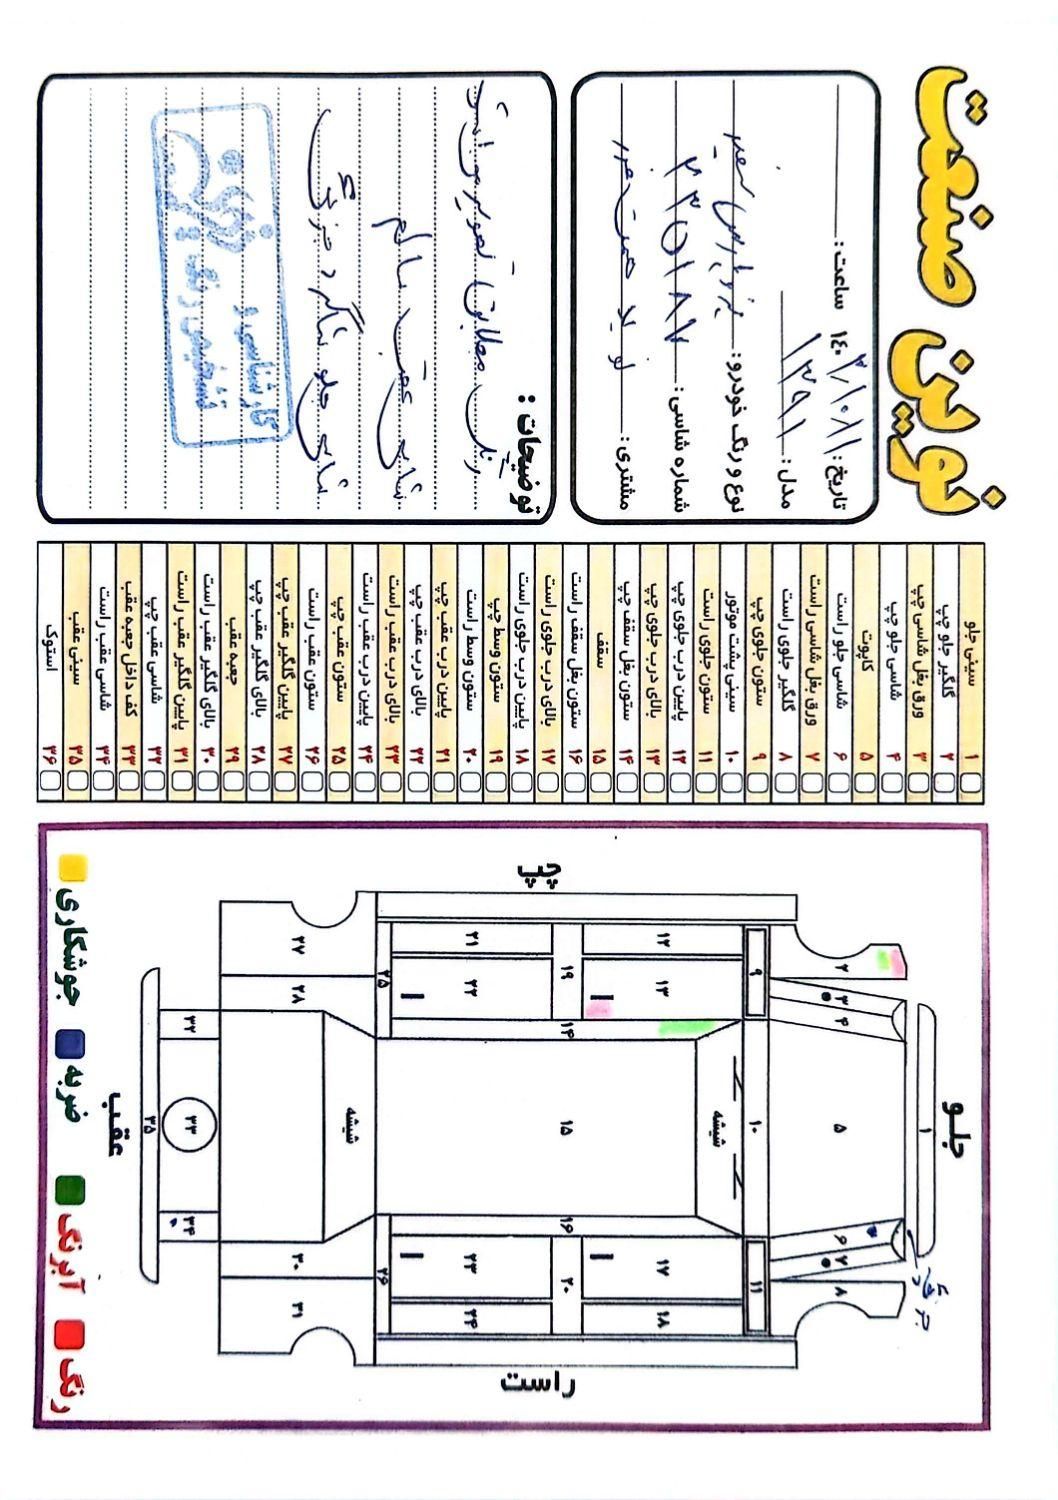 نوین صنعت
تاریخ: ۱۴۰۲/۰۸/۱ ساعت:
مدل: ۱۳۹۱
نوع و رنگ خودرو: پژو پارس سفید
شماره شاسی: ۲۳۵۱۸۷
مشتری:
توضیحات:
رنگ مطابق تصویر میباشد
شاسی عقب سالم
شاسی جلو شاگرد جزئی
کارشناسی و
تشخیص رنگ
سینی جلو ۱
گلگیر جلو چپ ۲
ورق بغل شاسی چپ ۳
شاسی جلو چپ ۴
کاپوت ۵
شاسی جلو راست ۶
ورق بغل شاسی راست ۷
گلگیر جلوی راست ۸
ستون جلوی چپ ۹
سینی پشت موتور ۱۰
ستون جلوی راست ۱۱
پایین درب جلوی چپ ۱۲
بالای درب جلوی چپ ۱۳
ستون بغل سقف چپ ۱۴
سقف ۱۵
ستون بغل سقف راست ۱۶
بالای درب جلوی راست ۱۷
پایین درب جلوی راست ۱۸
ستون وسط چپ ۱۹
ستون وسط راست ۲۰
پایین درب عقب چپ ۲۱
بالای درب عقب چپ ۲۲
بالای درب عقب راست ۲۳
پایین درب عقب راست ۲۴
ستون عقب چپ ۲۵
ستون عقب راست ۲۶
پایین گلگیر عقب چپ ۲۷
بالای گلگیر عقب چپ ۲۸
جعبه عقب ۲۹
بالای گلگیر عقب راست ۳۰
پایین گلگیر عقب راست ۳۱
شاسی عقب چپ ۳۲
کف داخل جعبه عقب ۳۳
شاسی عقب راست ۳۴
سینی عقب ۳۵
استوک ۳۶
جلو
۱
چپ
راست
۲
۳
۴
۵
۶
۷
۸
جزئی
۹
۱۰
۱۱
شیشه
۱۲
۱۳
۱۴
۱۵
۱۶
۱۷
۱۸
۱۹
۲۰
۲۱
۲۲
۲۳
۲۴
۲۵
۲۶
شیشه
۲۷
۲۸
۳۰
۳۱
۳۲
۳۳
۳۴
۳۵
عقب
جوشکاری
ضربه
آبرنگ
رنگ